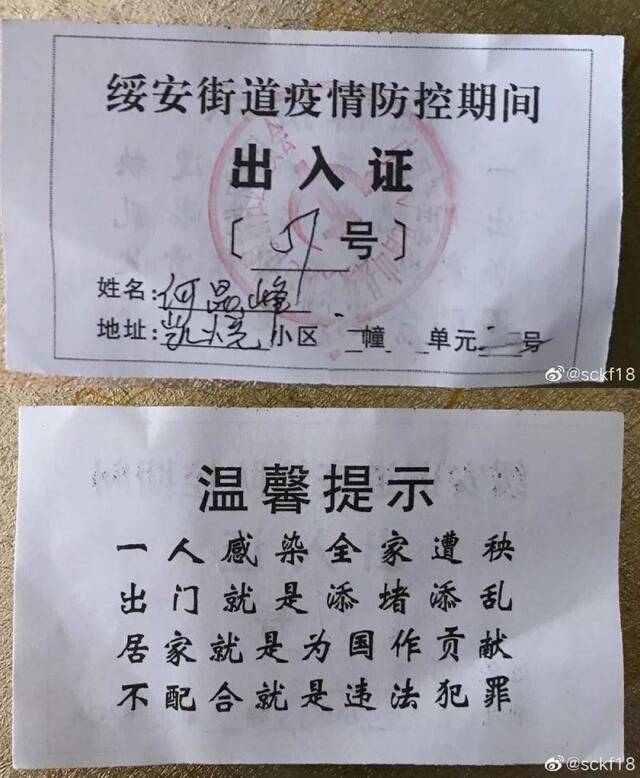 绥安街道疫情防控期间
出入证
〔 51 号〕
姓名:何晶峰
地址:凯悦 小区 二幢 单元 号
@sckf18
温馨提示
一人感染全家遭秧
出门就是添堵添乱
居家就是为国作贡献
不配合就是违法犯罪
@sckf18